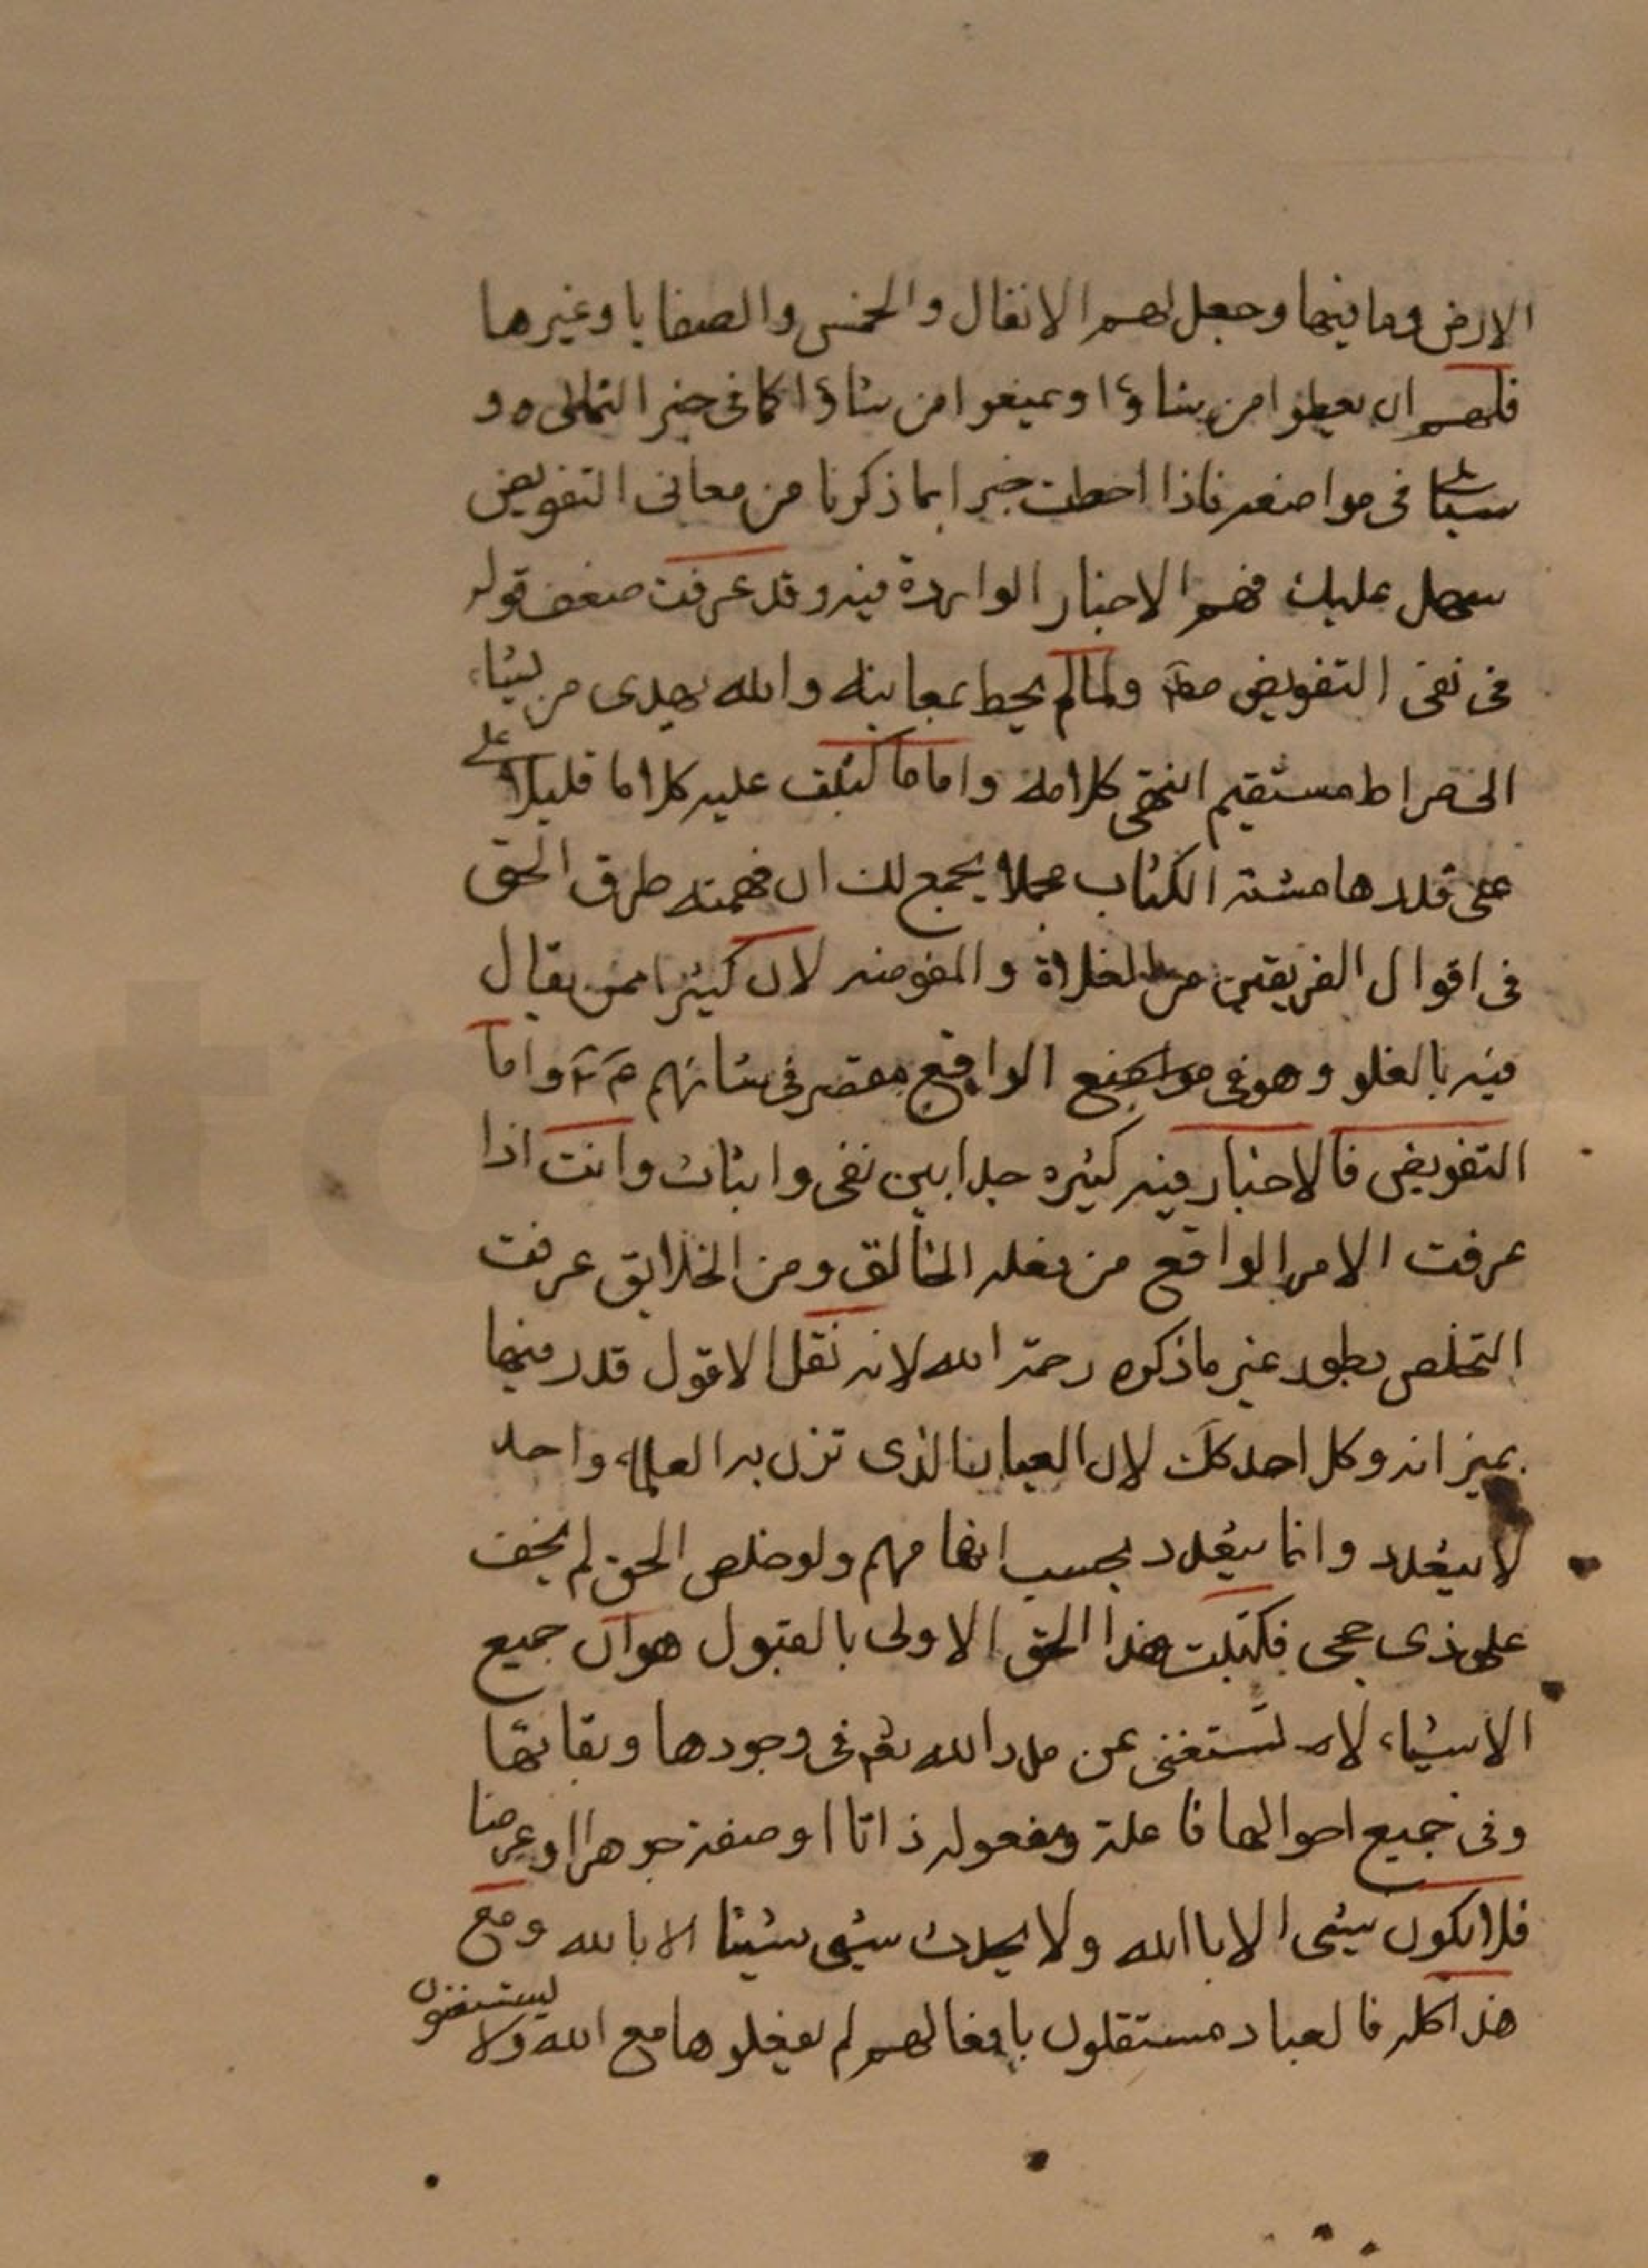 الارض وما فيها وجعل لهم الانفال والخمس والصفايا وغيرها
فلهم ان يعطوا من يشاؤا ويمنعوا من يشاؤا كما فى خبر الثمالى و
سيأتى فى مواضعه فاذا احطت خبرا بما ذكرنا من معانى التفويض
سهل عليك فهم الاخبار الواردة فيه وقد عرفت ضعف قوله
فى نفى التفويض مط ولما لم يحط بمعانيه والله يهدى من يشاء
الى صراط مستقيم انتهى كلامه واما ما كتبت عليه كلاما قليلا على
على قدر هامشة الكتاب مجملا يجمع لك ان فهمته طرق الحق
فى اقوال الفريقين من الغلاة والمفوضه لان كثيرا ممن يقال
فيه بالغلو وهو فى مواضع الواقع مقصر فى شانهم ع واما
التفويض فالاخبار فيه كثيره جدا بين نفى واثبات وانت اذا
عرفت الامر الواقع من فعله الخالق ومن الخلايق عرفت
التخلص بطور غير ما ذكره رحمة الله لانه نقل الاقول قدر فيها
بميزانه وكل احد كك لان العيان الذى تزن به العلماء واحد
لا يتعدد وانما يتعدد بحسب افهامهم ولو خلص الحق لم يخف
على ذى حجى فكتبت هذا الحق الاولى بالقبول هو ان جميع
الاشياء لا تستغنى عن مدد الله تع فى وجودها وبقائها
وفى جميع احوالها فاعلة ومفعوله ذاتا او صفة جوهرا او عرضا
فلا يكون شيئى الا باالله ولا يحدث شيئى شيئا الا بالله ومع
هذا كله فالعباد مستقلون بافعالهم لم يفعلوها مع الله ولا يستغنون